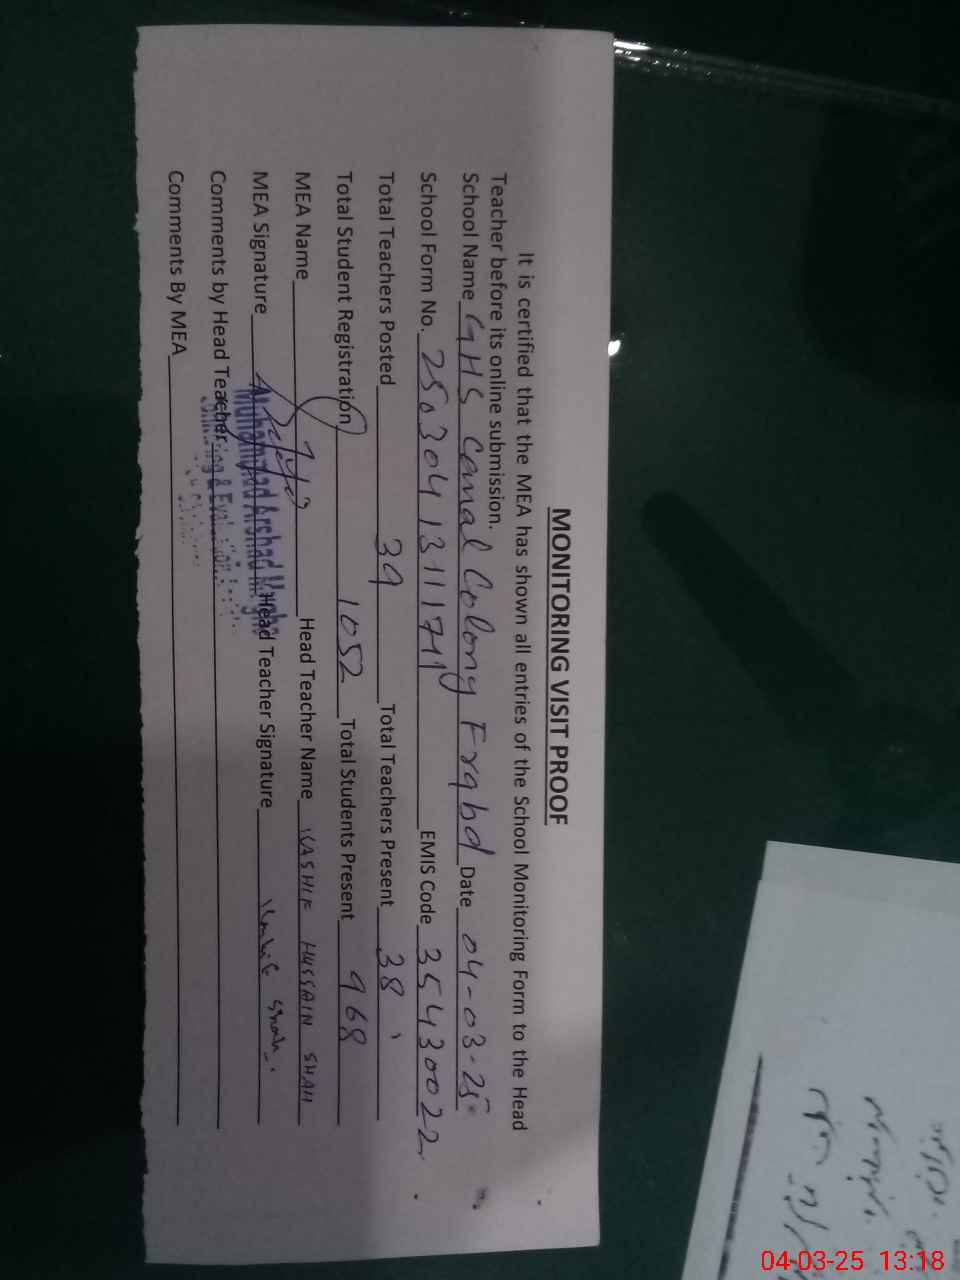 MONITORING VISIT PROOF
It is certified that the MEA has shown all entries of the School Monitoring Form to the Head
Teacher before its online submission.
School Name GHS Canal Colony Frqbd Date 04-03-25
School Form No. 250304131117 EMIS Code 35430022
Total Teachers Posted 39 Total Teachers Present 38
Total Student Registration 1052 Total Students Present 968
MEA Name Head Teacher Name KASHIF HUSSAIN SHAH
MEA Signature Muhammad Arshad Head Teacher Signature Kashif Shah
Comments by Head Teacher
Comments By MEA
04-03-25 13:18